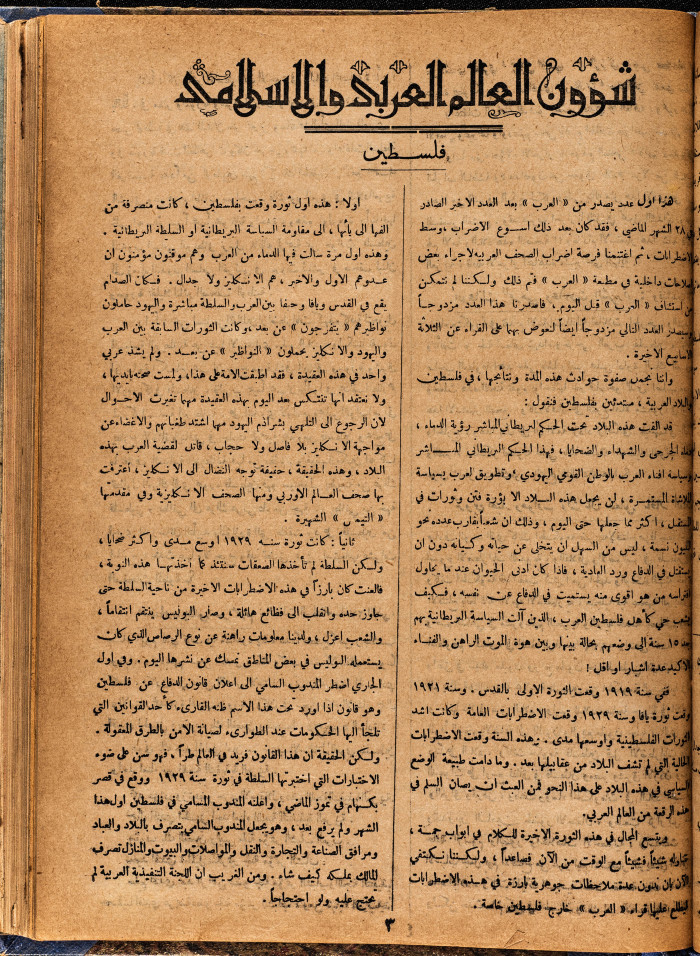 شؤون العالم العربي والاسلامي
فلسطين
هذا اول عدد يصدر من « العرب » بعد العدد الاخير الصادر
٢٨ الشهر الماضي ، فقد كان بعد ذلك اسبوع الاضراب ، وسط
الاضطرابات ، ثم اغتنمنا فرصة اضراب الصحف العربية لاجراء بعض
اصلاحات داخلية في مطبعة « العرب » فتم ذلك ولكننا لم نتمكن
من استئناف « العرب » قبل اليوم . فاصدرنا هذا العدد مزدوجاً
وسيصدر العدد التالي مزدوجاً ايضاً لنعوض بهما على القراء عن الثلاثة
الاسابيع الاخيرة .
واننا نجمل صفوة حوادث هذه المدة ونتائجها ، في فلسطين
والبلاد العربية ، مبتدئين بفلسطين فنقول :
قد الفت هذه البلاد تحت الحكم البريطاني المباشر رؤية الدماء ،
الجرحى والشهداء والضحايا ، فهذا الحكم البريطاني المباشر
وسياسة افناء العرب بالوطن القومي اليهودي ، وتطويق العرب بسياسة
المستمرة ، لن يجعل هذه البلاد الا بؤرة فتن وثورات في
المستقبل ، اكثر مما جعلها حتى اليوم ، وذلك ان شعباً يقارب عدده نحو
مليون نسمة ، ليس من السهل ان يتخلى عن حياته وكيانه دون ان
في الدفاع ورد العادية ، فاذا كان ادنى الحيوان عند ما يحاول
افتراسه من هو اقوى منه يستميت في الدفاع عن نفسه ، فكيف
بشعب حي كأهل فلسطين العرب ، الذين آلت السياسة البريطانية بهم
بعد ١٥ سنة الى وضعهم بحالة بينها وبين هوة الموت الراهن والفناء
الاكيد عدة اشبار او اقل !
ففي سنة ١٩١٩ وقعت الثورة الاولى بالقدس . وسنة ١٩٢١
وقعت ثورة يافا وسنة ١٩٢٩ وقعت الاضطرابات العامة وكانت اشد
الثورات الفلسطينية واوسعها مدى . وهذه السنة وقعت الاضطرابات
الحالية التي لم تشف البلاد من عقابيلها بعد . وما دامت طبيعة الوضع
السياسي في هذه البلاد على هذا النحو فمن العبث ان يصان السلم في
هذه الرقعة من العالم العربي .
ويتسع المجال في هذه الثورة الاخيرة للكلام في ابواب جمة ،
نتناوله شيئاً فشيئاً مع الوقت من الآن فصاعداً ، ولكننا نكتفي
الآن بان ندون عدة ملاحظات جوهرية بارزة في هذه الاضطرابات
ليطلع عليها قراء « العرب » خارج فلسطين خاصة .
اولا : هذه اول ثورة وقعت بفلسطين ، كانت منصرفة من
الفها الى يائها ، الى مقاومة السياسة البريطانية او السلطة البريطانية .
وهذه اول مرة سالت فيها الدماء من العرب وهم موقنون مؤمنون ان
عدوهم الاول والاخير ، هم الانكليز ولا جدال . فكان الصدام
يقع في القدس ويافا وحيفا بين العرب والسلطة مباشرة واليهود حاملون
نواظيرهم « يتفرجون » عن بعد ، وكانت الثورات السابقة بين العرب
واليهود والانكليز يحملون « النواظير » عن بعد . ولم يشذ عربي
واحد في هذه العقيدة ، فقد اطبقت الامة على هذا ، ولمست صحته بايديها ،
ولا نعتقد انها تنتكس بعد اليوم بهذه العقيدة مهما تغيرت الاحوال
لان الرجوع الى التلهي بشراذم اليهود مهما اشتد طغيانهم والاغضاء عن
مواجهة الانكليز بلا فاصل ولا حجاب ، قاتل لقضية العرب بهذه
البلاد ، وهذه الحقيقة ، حقيقة توجه النضال الى الانكليز ، أعترفت
بها صحف العالم الاوربي ومنها الصحف الانكليزية وفي مقدمتها
« التيمس » الشهيرة .
ثانياً : كانت ثورة سنة ١٩٢٩ اوسع مدى واكثر ضحايا ،
ولكن السلطة لم تأخذها الصعقات سنتئذ كما أخذتها هذه النوبة ،
فالعنت كان بارزاً في هذه الاضطرابات الاخيرة من ناحية السلطة حتى
جاوز حده وانقلب الى فظائع هائلة ، وصار البوليس ينتقم انتقاماً ،
والشعب اعزل ، ولدينا معلومات راهنة عن نوع الرصاص الذي كان
يستعمله البوليس في بعض المناطق نمسك عن نشرها اليوم . وفي اول
الجاري اضطر المندوب السامي الى اعلان قانون الدفاع عن فلسطين
وهو قانون اذا اورد تحت هذا الاسم ظنه القارىء كأحد القوانين التي
تلجأ اليها الحكومات عند الطوارىء لصيانة الامن بالطرق المعقولة .
ولكن الحقيقة ان هذا القانون فريد في العالم طراً ، فهو سن على ضوء
الاختبارات التي اختبرتها السلطة في ثورة سنة ١٩٢٩ ووقع في قصر
بكنهام في تموز الماضي ، واعلنه المندوب السامي في فلسطين اول هذا
الشهر ولم يرفع بعد ، وهو يجعل المندوب السامي يتصرف بالبلاد والعباد
ومرافق الصناعة والتجارة والنقل والمواصلات والبيوت والمنازل تصرف
المالك بملكه كيف شاء . ومن الغريب ان اللجنة التنفيذية العربية لم
تحتج عليه ولو احتجاجاً .
٣